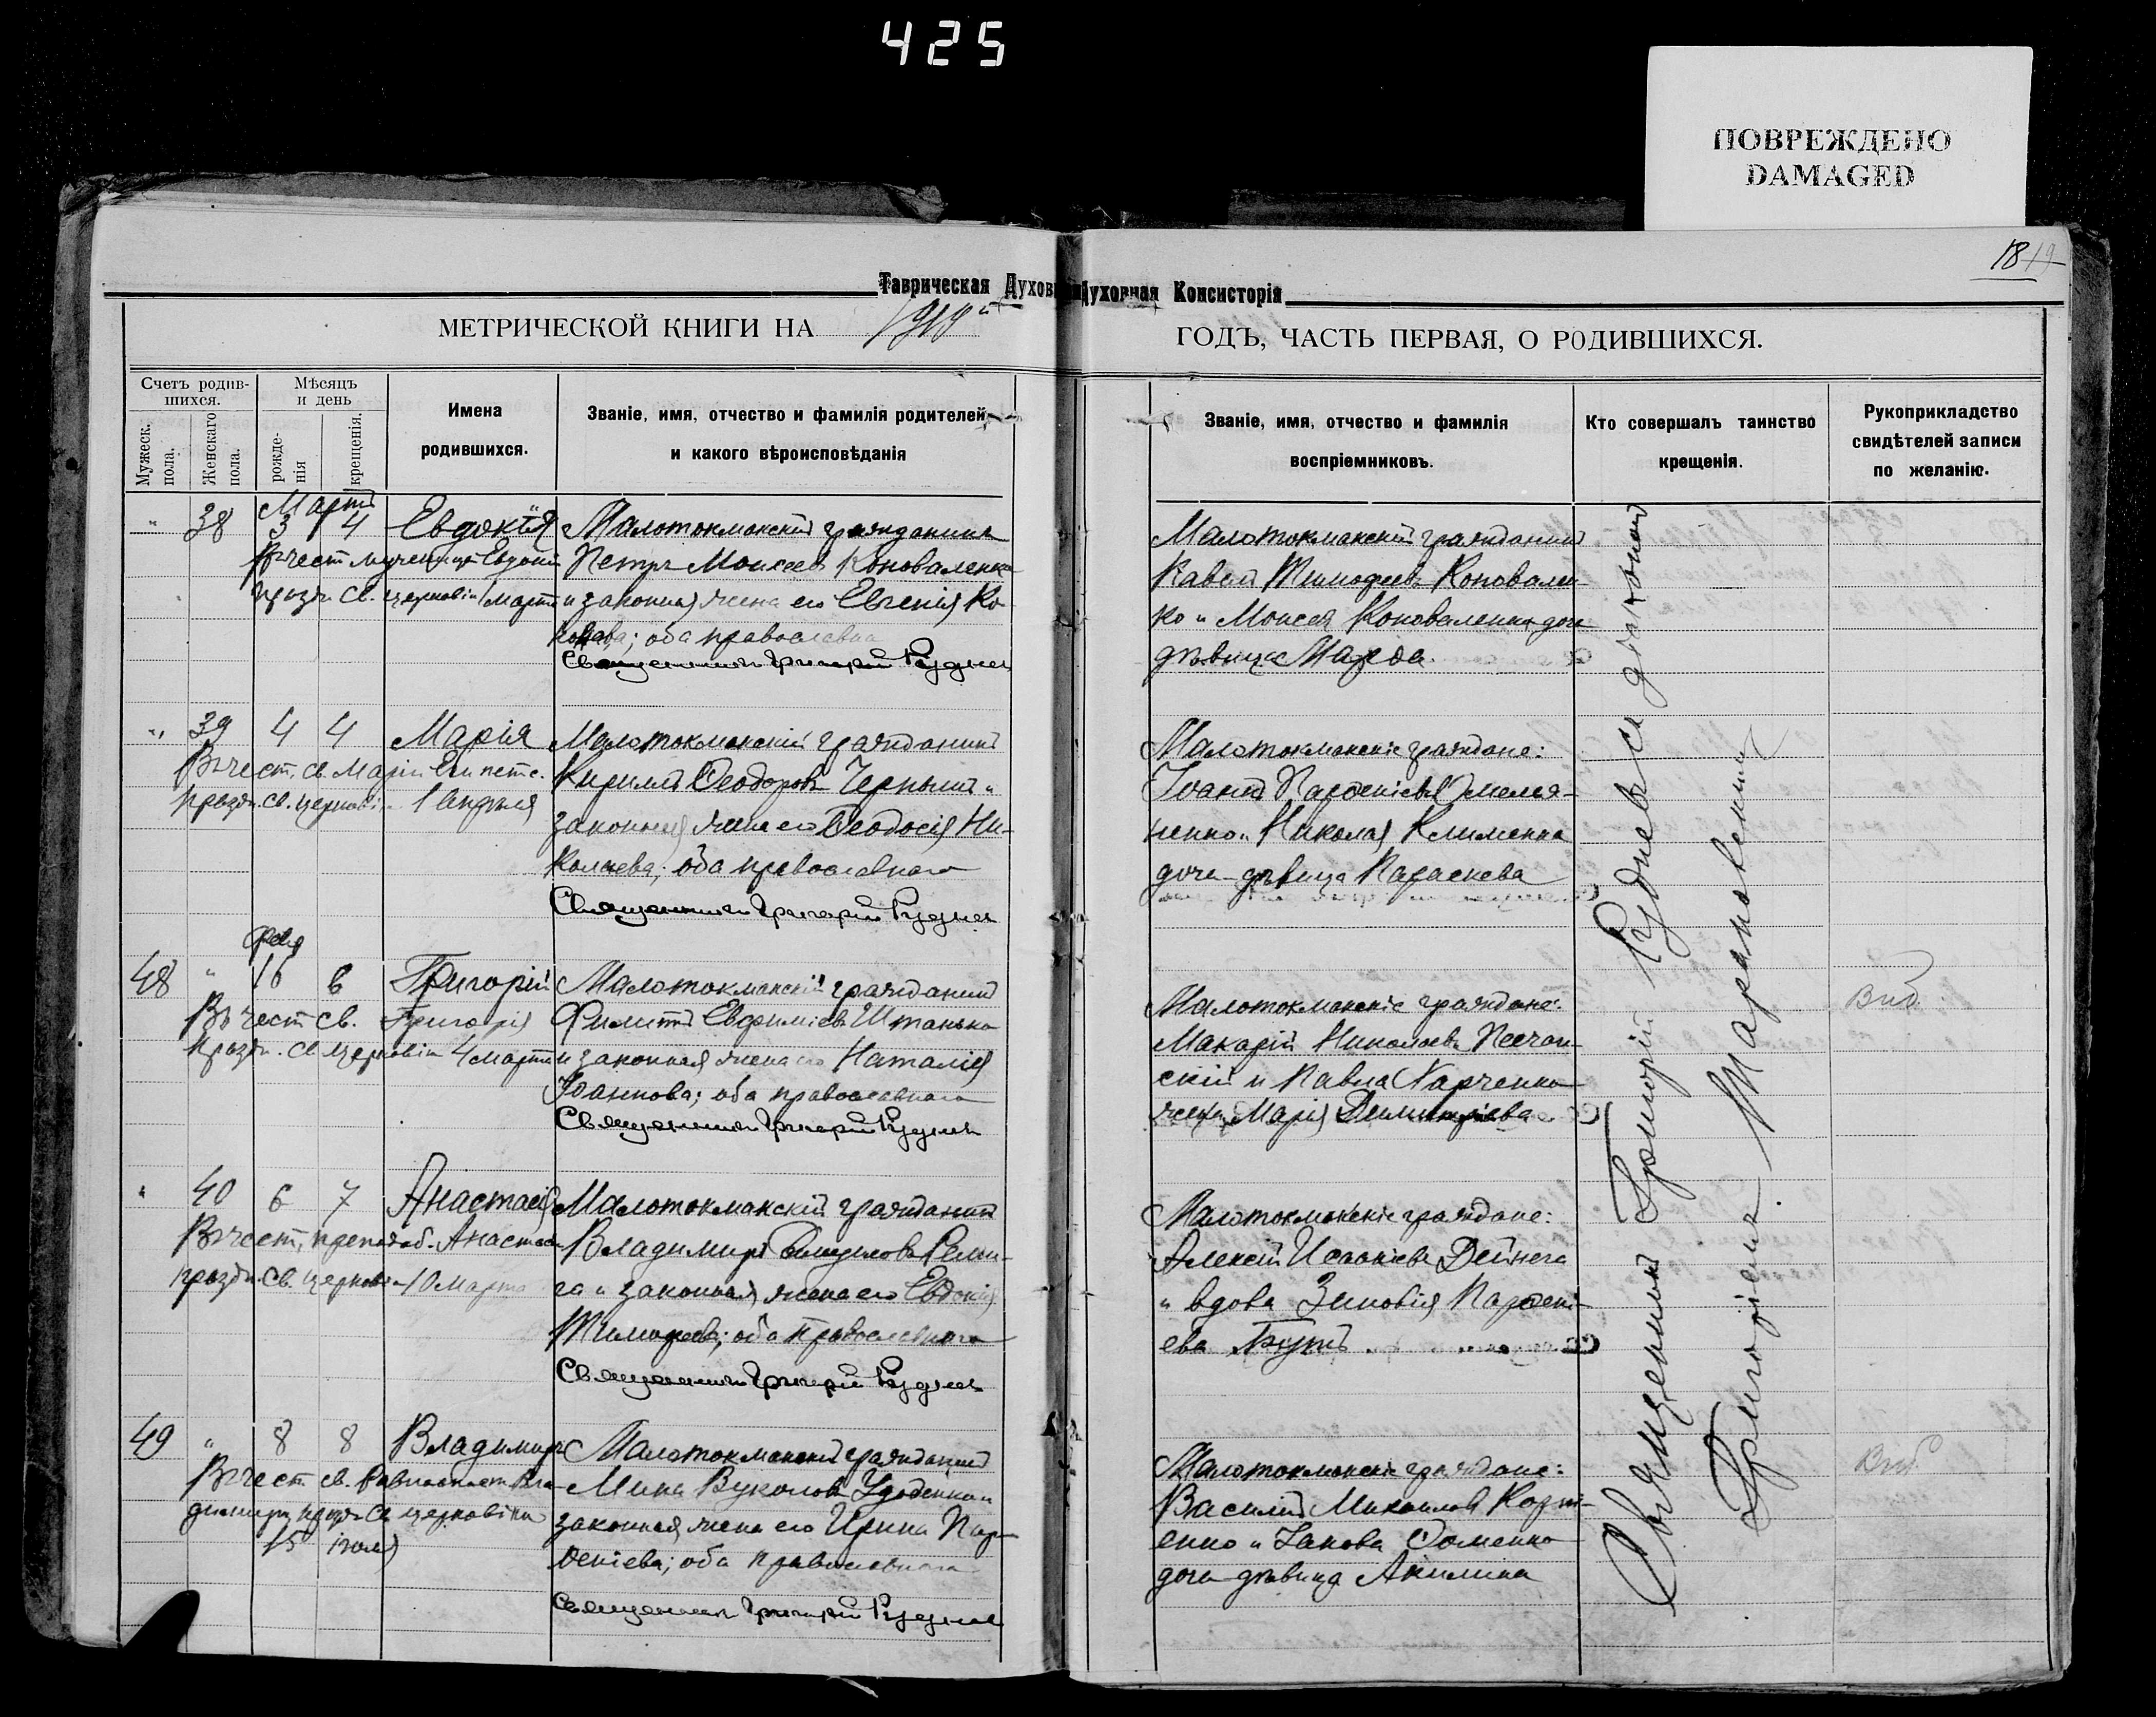 425
ПОВРЕЖДЕНО
DAMAGED
18 19
Таврическая Духовная Консисторія
МЕТРИЧЕСКОЙ КНИГИ НА
ГОДЪ, ЧАСТЬ ПЕРВАЯ, О РОДИВШИХСЯ.
Счетъ родив-
шихся.
Мужеск. пола.
Женскаго пола.
Мѣсяцъ
и день
рожде-
нія
крещенія.
Имена
родившихся.
Званіе, имя, отчество и фамилія родителей,
и какого вѣроисповѣданія
Званіе, имя, отчество и фамилія
воспріемниковъ.
Кто совершалъ таинство
крещенія.
Рукоприкладство
свидѣтелей записи
по желанію.
Мартъ
" 38 3 4 Евдокія
Въ чест мученицы Евдокіи
празд. св. церковію 1 марта
Малотокмакскій гражданинъ
Петръ Моисеевъ Коноваленко
и законная жена его Евгенія
оба православна
Священникъ Григорій Руднев
Малотокмакскій гражданинъ
Павелъ Тимофеевъ Коновален-
ко и Моисея Коноваленка дочь
дѣвица Марѳа.
" 39 4 4 Марія
Въ чест. св. Маріи Египетс.
празд. св. церковію 1 апрѣля
Малотокмакскій гражданинъ
Кириллъ Ѳеодоровъ Черный и
законная жена его Ѳеодосія Ни-
колаева; оба православнаго
Священникъ Григорій Руднев
Малотокмакскіе граждане:
Іоаннъ Парѳеніевъ Омелья-
ненко и Николая Клименка
дочь дѣвица Параскева
Фев
48 " 16 6 Григорій
Въ чест св. Григорія
празд. св. церковію 4 марта
Малотокмакскій гражданинъ
Филиппъ Евфиміевъ Штанько
и законная жена его Наталія
Іоаннова; оба православнаго
Священникъ Григорій Руднев
Малотокмакскіе граждане:
Макарій Николаевъ Песчан-
скій и Павла Харченко
жена Марія Димитріева
Выд.
" 40 6 7 Анастасія
Въ чест. преподоб. Анастасіи
празд. св. церковію 10 марта
Малотокмакскій гражданинъ
Владимиръ
га и законная жена его Евдокія
Тимофеева; оба православнаго
Священникъ Григорій Руднев
Малотокмакскіе граждане:
Алексій Дейнега
и вдова Зиновія Парѳені-
ева Бутъ
49 " 8 8 Владимиръ
Въ чест св. Равноапост. Вла-
димира празд. св. церковію
15 іюля
Малотокмакскій гражданинъ
Мина Вуколовъ Удоденко и
законная жена его Ирина Пар-
ѳеніева; оба православнаго
Священникъ Григорій Руднев
Малотокмакскіе граждане:
Василій Михаиловъ Корні-
енко и Іакова Фоменко
дочь дѣвица Акилина
Выд
Священникъ Григорій Рудневъ съ діакономъ
Григоріемъ Тарановскимъ